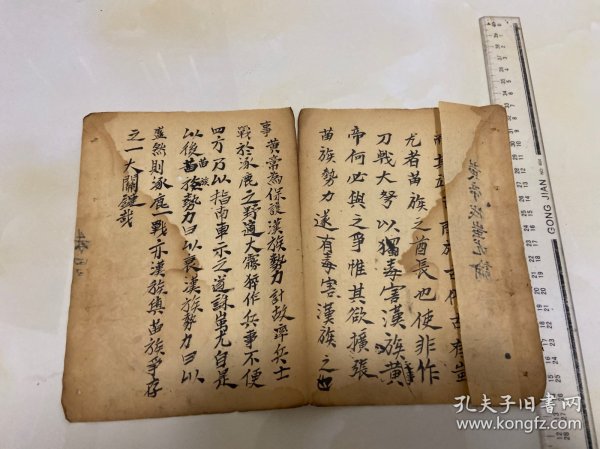 尤者苗族之酋長也使非作
刀戟大弩以獨毒害漢族黄
帝何必與之爭惟其欲擴張
苗族勢力遂有毒害漢族之
事黄帝為保護漢族勢力計故率兵士
戰於涿鹿之野適大霧猝作兵事不便
四方乃以指南車示之道誅蚩尤自是
以後苗族勢力日以衰漢族勢力日以
盛然則涿鹿一戰亦漢族與苗族爭存
之一大關鍵哉
GONG JIAN
孔夫子旧書网
www.kongfz.com